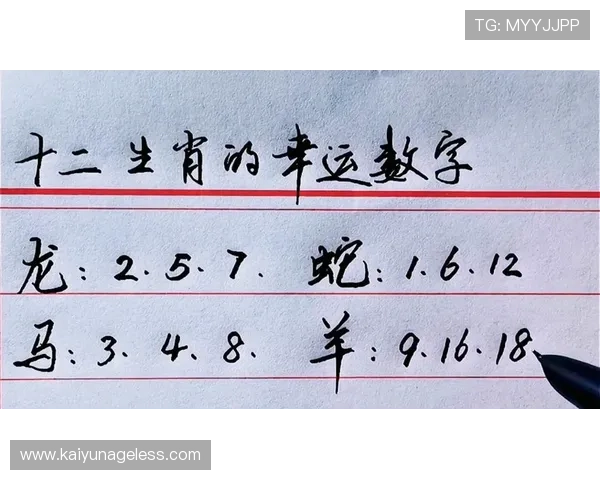 TG: MYYJJPP
十二生肖的幸运数字
龙: 2. 5. 7. 蛇: 1. 6. 12
马: 3. 4. 8. 羊: 9. 16. 18
www.kaiyunageless.com